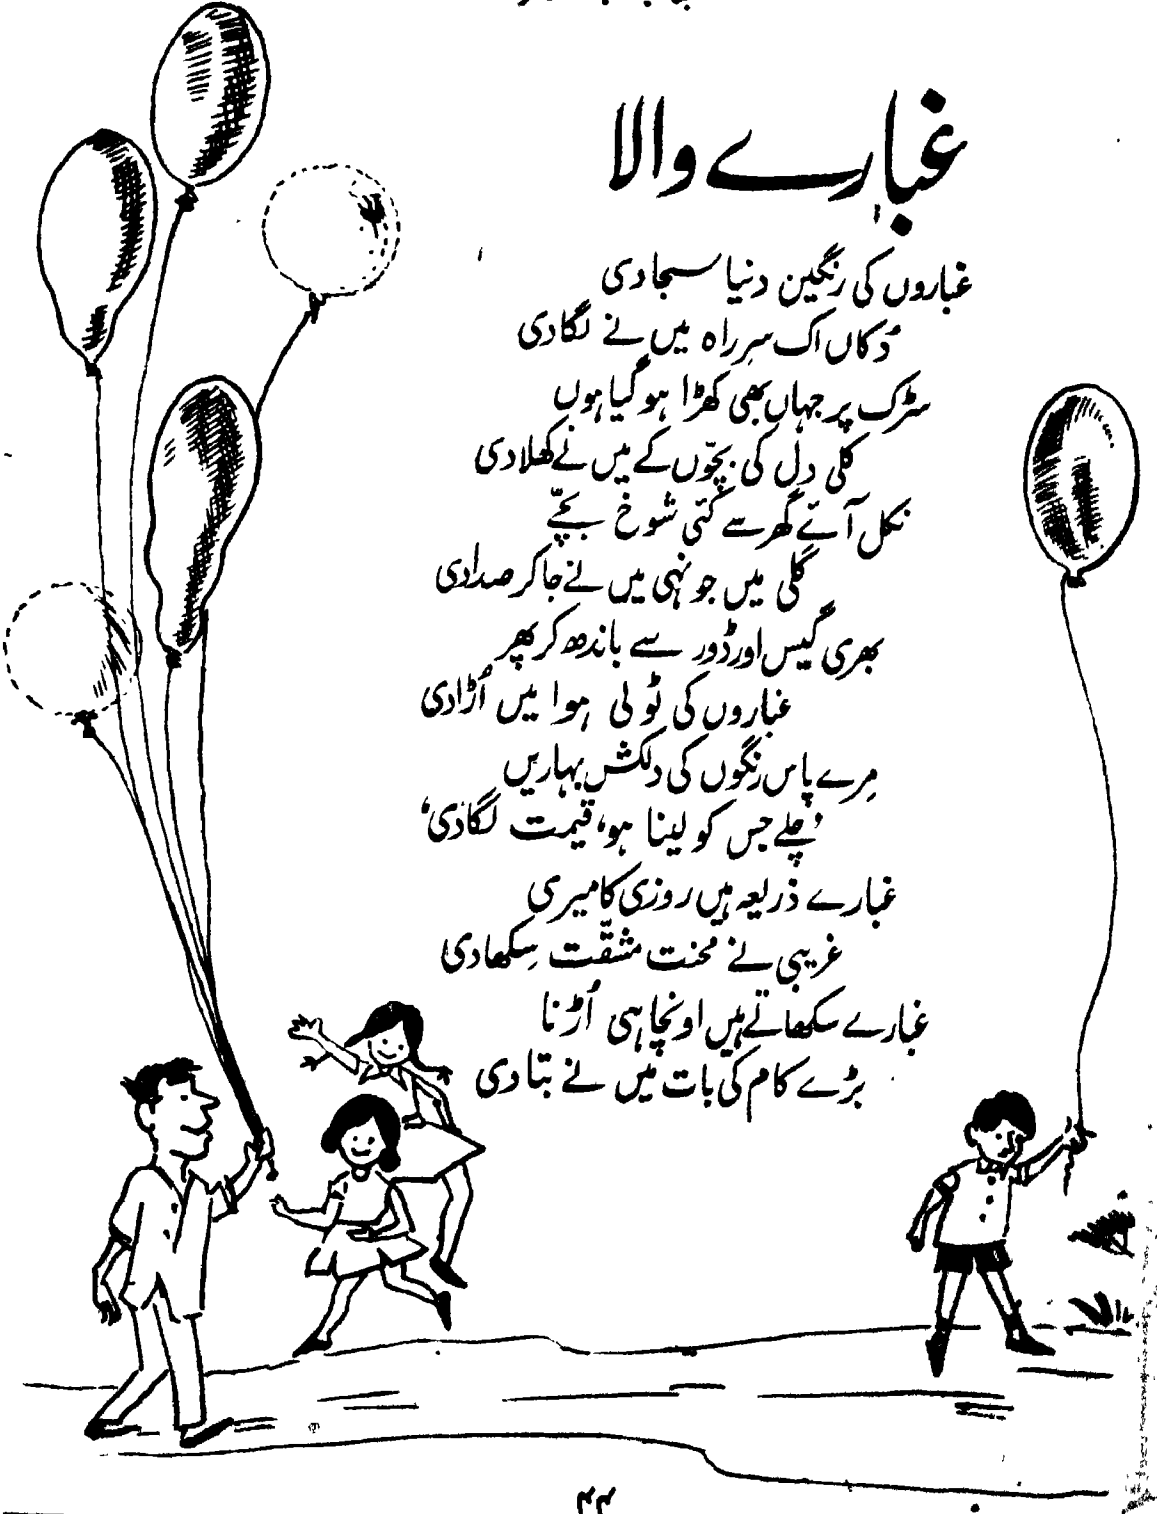 غبارے والا
غباروں کی رنگین دنیا سجا دی
دُکاں اک سرِ راہ میں نے لگا دی
سڑک پر جہاں بھی کھڑا ہو گیا ہوں
کلی دل کی بچّوں کے میں نے کھلا دی
نکل آئے گھر سے کئی شوخ بچّے
گلی میں جونہی میں نے جا کر صدا دی
بھری گیس اور ڈور سے باندھ کر پھر
غباروں کی ٹولی ہوا میں اُڑا دی
مِرے پاس رنگوں کی دلکش بہاریں
’چلے جس کو لینا ہو، قیمت لگا دی‘
غبارے ذریعہ ہیں روزی کا میری
غریبی نے محنت مشقّت سِکھا دی
غبارے سکھاتے ہیں اونچا ہی اُڑنا
بڑے کام کی بات میں نے بتا دی
۴۴